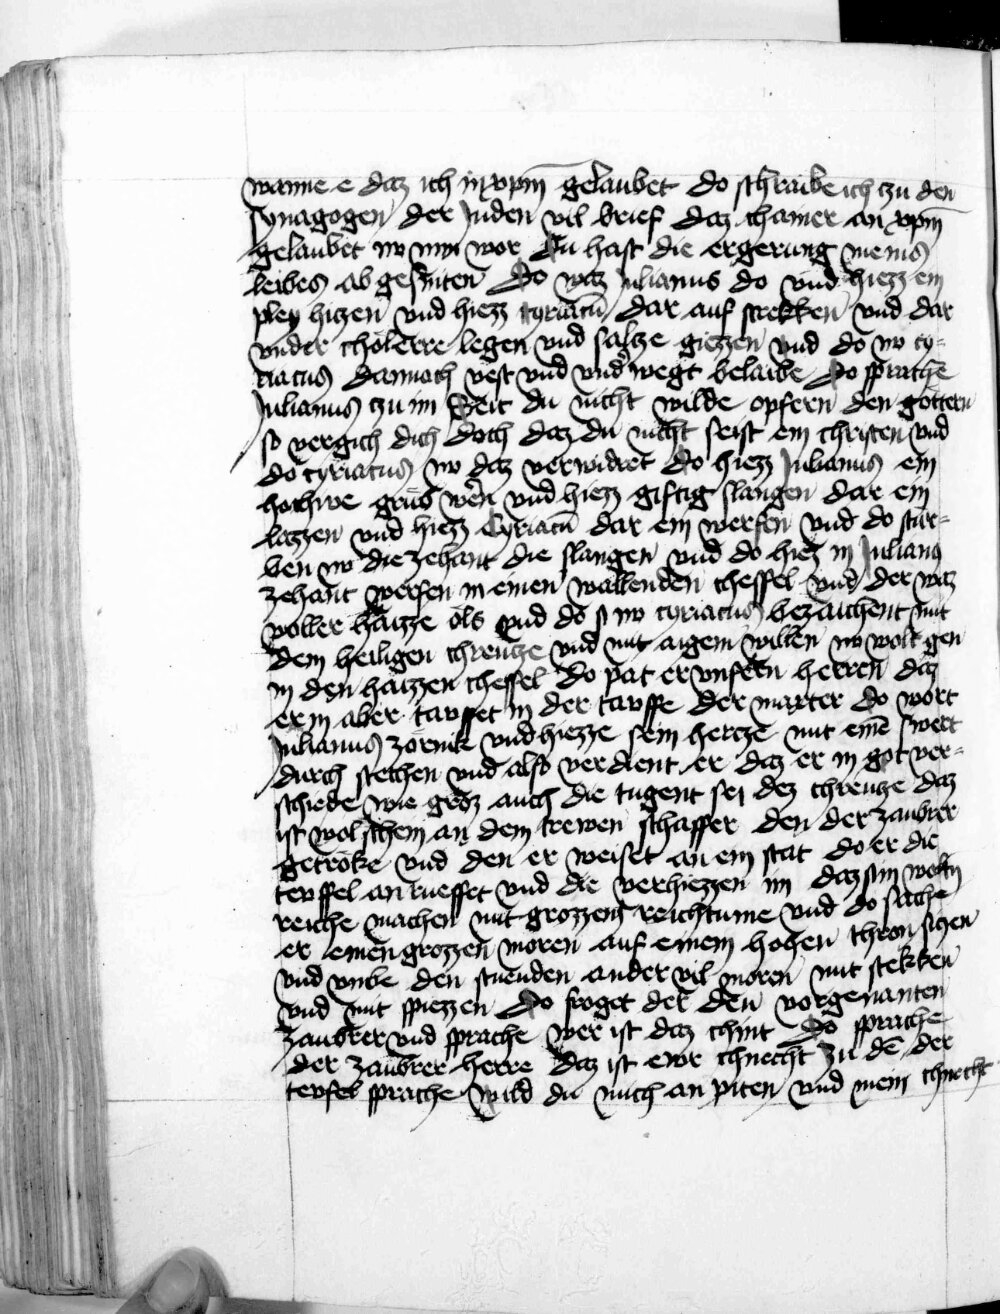 wanne e daz ich in xpm̄ gelaubet do schraibe ich zu den
synagogen der Juden vil brief daz chainer an xpm̄
gelaubet nv nim wor du hast die ergerung meines
leibes ab gesniten Do waz Julianus do vnd hiezz ein
pley hizen vnd hiezz cyriacū dar auf strekken vnd dar
vnder cholerre legen vnd saltze giezzen vnd do nv cy-
riacus dannoch vest vnd vnd wegt belaibe Do sprache
Julianus zu im Seit du nicht wilde opfern den göttern
so vergich dich doch daz du nicht seist ein christen vnd
do cyriacus nv daz verwidret do hiezz Julianus ein
hochwe grub wern vnd hiezz giftig slangen dar ein
lazzen vnd hiezz Cyriacū dar ein werfen vnd do stur-
ben nv die zehant die slangen vnd do hiez in Julianus
zehant werfen in einen wallenden cheffel vnd der waz
voller haizze öls vnd do s nv cyriacus bezaichent mit
dem heiligen chreutze vnd mit aigem willen nv wolt gen
in den haizzen cheffel do pat er vnsern herren daz
er in aber tauffet in der tauffe der marter do wort
Julianus zörnik vnd hiezze sein hertze mit einē swert
durch stechen vnd also verdient er daz er in got ver-
schiede wie groz auch die tugent sei dez chreutze daz
ist wol schein an dem trewen schaffer den der zaubrer
getroke vnd den er weiset an ein stat do er die
teuffel an rueffet vnd die verhiezzen im daz sim wolten
reiche machen mit grozzem reichtume vnd do sache
er einen grozzen moren auf einem hohen thron siczen
vnd vmbe den stuenden ander vil moren mit stekken
vnd mit spiezzen Do froget der den vorgenanten
zaubrer vnd sprache wer ist daz chint Do sprache
der zaubrer herre daz ist ewr chnecht zu dē der
teufel sprache wild du mich an piten vnd mein chnecht